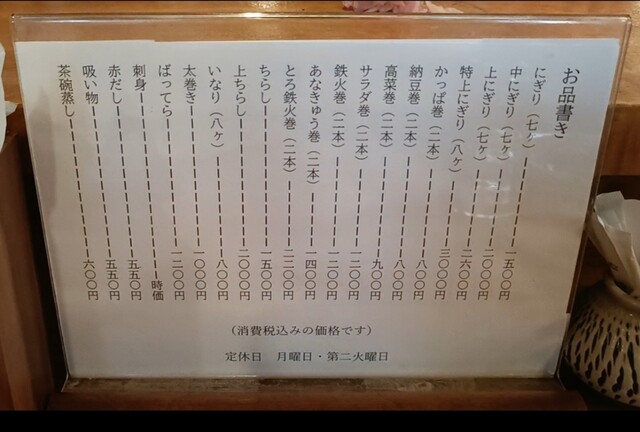 お品書き
にぎり（七ヶ）一五〇〇円
中にぎり（七ヶ）二〇〇〇円
上にぎり（七ヶ）二六〇〇円
特上にぎり（八ヶ）三〇〇〇円
かっぱ巻（二本）八〇〇円
納豆巻（二本）八〇〇円
高菜巻（二本）九〇〇円
サラダ巻（二本）一二〇〇円
鉄火巻（二本）一二〇〇円
あなきゅう巻（二本）一四〇〇円
とろ鉄火巻（二本）二二〇〇円
ちらし一五〇〇円
上ちらし二〇〇〇円
いなり（八ヶ）八〇〇円
太巻き一〇〇〇円
ばってら一二〇〇円
刺身時価
赤だし五五〇円
吸い物五五〇円
茶碗蒸し六〇〇円
（消費税込みの価格です）
定休日　月曜日・第二火曜日